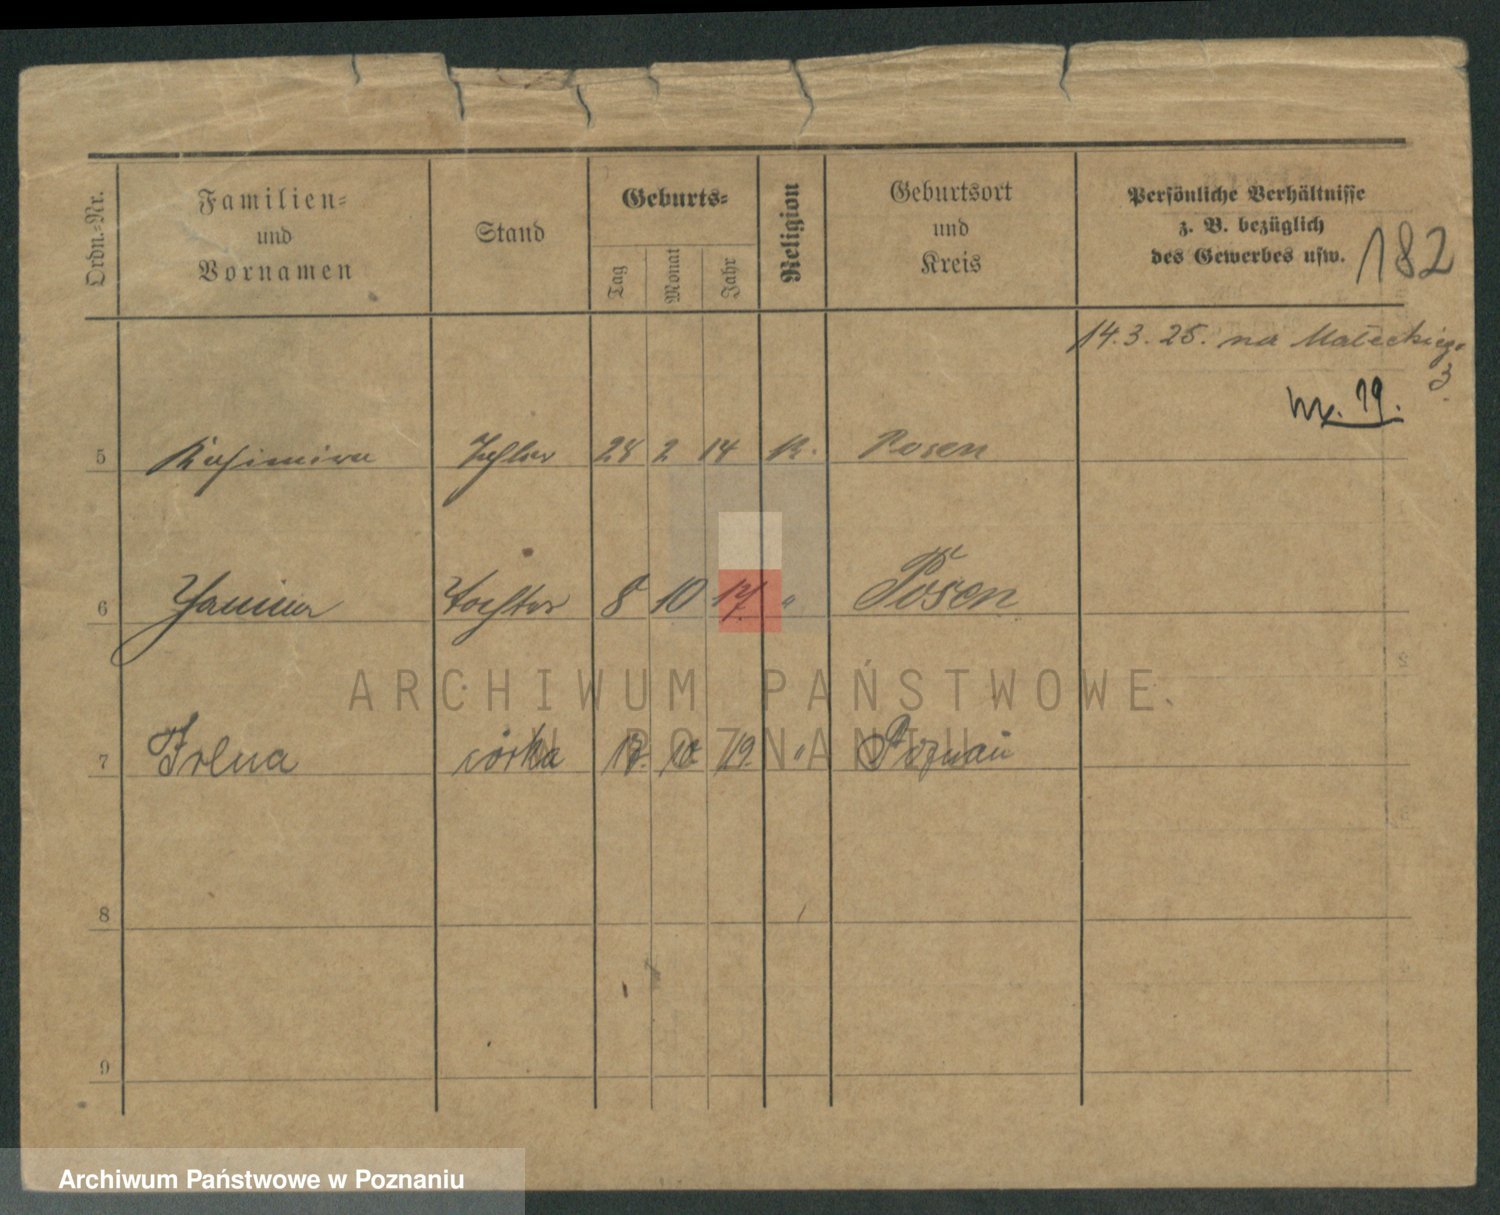 Ordn.-Nr.
Familien-
und
Vornamen
Stand
Geburts-
Tag
Monat
Jahr
Religion
Geburtsort
und
Kreis
Persönliche Verhältnisse
z. B. bezüglich
des Gewerbes usw.
182
14.3.25. na Małeckiego
3
19.
5 Kasimira Tochter 28 2 14 K. Posen
6 Janina Tochter 8 10 17 " Posen
ARCHIWUM PAŃSTWOWE
W POZNANIU
7 Irena córka 10 19. " Poznań
8
9
Archiwum Państwowe w Poznaniu